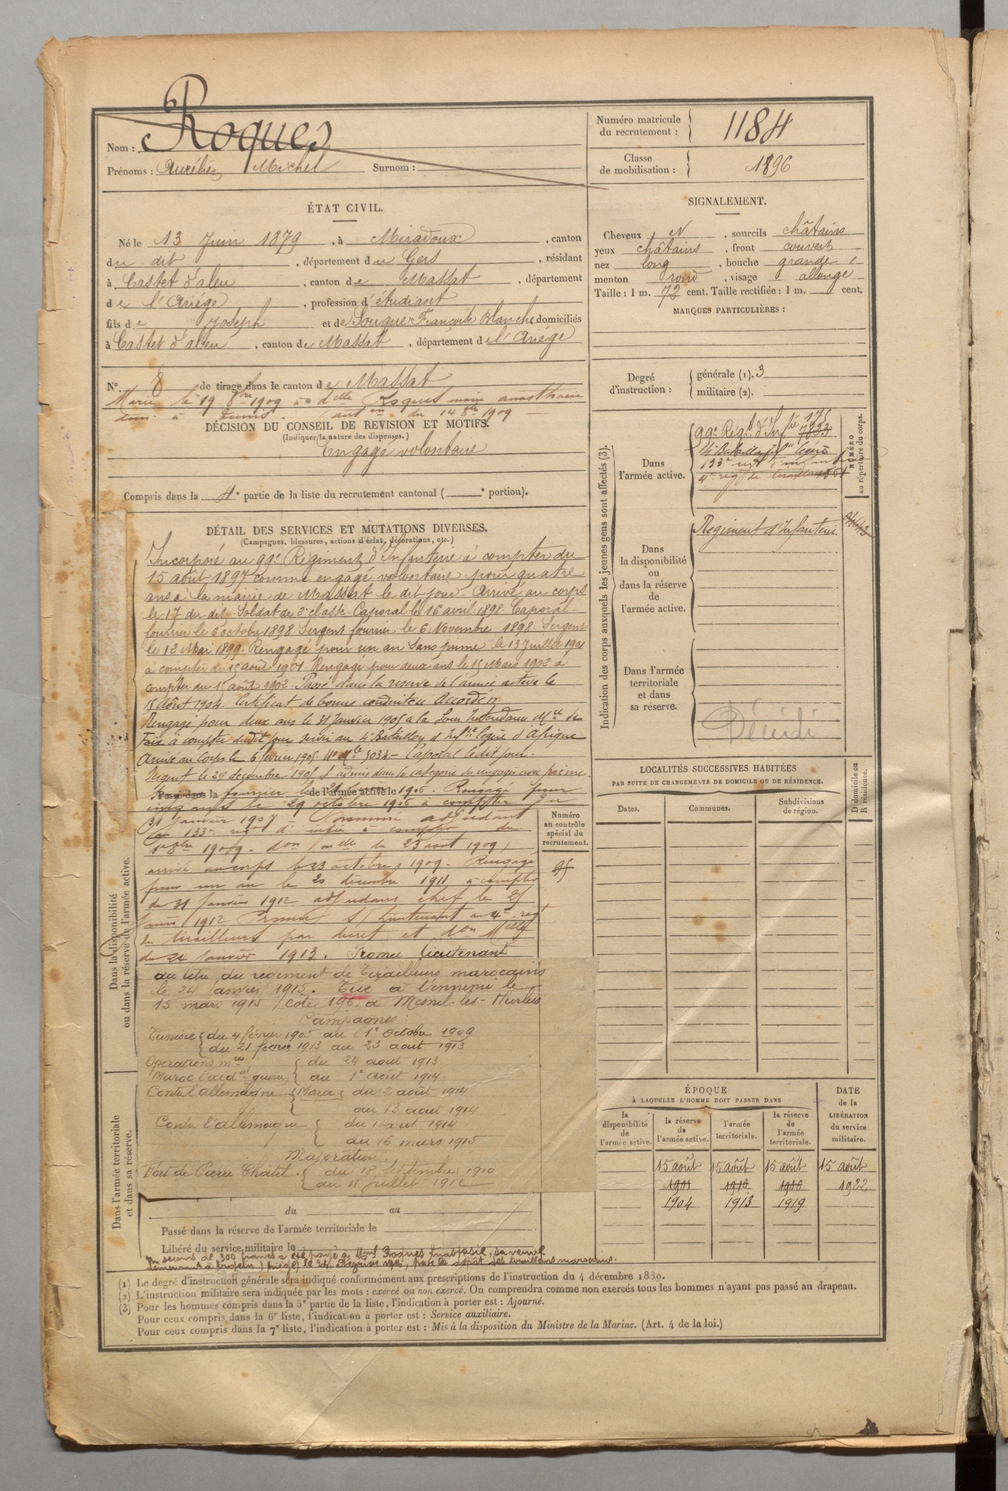 Nom : Roques
Prénoms : Aurélien Michel Surnom :
Numéro matricule du recrutement : 1184
Classe de mobilisation : 1896
ÉTAT CIVIL.
Né le 13 Juin 1879, à Miradoux, canton
du dit, département du Gers, résidant
à Castet d'aleu, canton de Massat, département
de l'Ariège, profession d'étudiant
fils de Joseph et de Souquer Françoise Blanche domiciliés
à Castet d'aleu, canton de Massat, département de l'Ariège
SIGNALEMENT.
Cheveux N, sourcils châtains
yeux châtains, front couvert
nez long, bouche grande
menton rond, visage allongé
Taille : 1 m. 72 cent. Taille rectifiée : 1 m. cent.
MARQUES PARTICULIÈRES :
N° 8 de tirage dans le canton de Massat
Marié le 19 8bre 1909 à delle Roques marie
à Tunis. aut on du 14 8bre 1909
DÉCISION DU CONSEIL DE REVISION ET MOTIFS.
(Indiquer la nature des dispenses.)
Engagé volontaire
Compris dans la 4e partie de la liste du recrutement cantonal ( e portion).
Degré d'instruction : générale (1). 3
militaire (2).
Indication des corps auxquels les jeunes gens sont affectés (3).
NUMÉRO au répertoire du corps.
Dans l'armée active.
99e Régt d'Infie 175
4e Bataillon
133e regt
4e reg de tirailleurs
Dans la disponibilité ou dans la réserve de l'armée active.
Regiment d'Infanterie
Dans l'armée territoriale et dans sa réserve.
Décédé
DÉTAIL DES SERVICES ET MUTATIONS DIVERSES.
(Campagnes, blessures, actions d'éclat, décorations, etc.)
Incorporé au 99e Régiment d'Infanterie à compter du
15 août 1897 comme engagé volontaire pour quatre
ans à la mairie de Massat le dit jour. Arrivé au corps
le 17 du dit. Soldat de 2e classe. Caporal le 16 avril 1898. Caporal
fourrier le 6 octobre 1898 Sergent fourrier le 6 Novembre 1898. Sergent
le 12 Mai 1899. Rengagé pour un an sans prime le 13 Juillet 1901
à compter du 15 août 1901 Rengagé pour deux ans le 15 Mars 1902 à
compter du 15 août 1902. Passé dans la réserve de l'armée active le
15 Août 1904. Certificat de bonne conduite Accordé
Rengagé pour deux ans le 31 Janvier 1905 à la Sous Intendance Mre de
Foix à compter du dit jour au 4e Bataillon d'Infie légère d'Afrique
Arrivé au Corps le 6 février 1905 No Mle 3034 - Caporal le dit jour.
Sergent le 29 décembre 1905 et admis dans la catégorie des engagés avec prime.
Passé dans la de l'armée active le
fourrier le 1905. Rengagé pour
cinq ans le 29 octobre 1906 à compter du
31 janvier 1907 - nommé adjudant
au 133e regt d'infie à compter du
1909. don du 23 août 1909)
arrivé au corps le 23 octobre 1909. Rengagé
pour un an le 20 décembre 1911 à compter
du 31 Janvier 1912 adjudant chef le 25
juin 1912 Promu s/Lieutenant au 4e regt
de tirailleurs par décret et don Melle
du 24 Janvier 1913. Promu lieutenant
au titre du régiment de Tirailleurs marocains
le 24 janvier 1915. Tué à l'ennemi le
15 mars 1915 (cote 196) à Mesnil-les-Hurlus
Campagnes :
Tunisie du 4 février 1905 au 1er Octobre 1909
du 21 février 1913 au 23 août 1913
Opérations mres du 24 août 1913
Maroc Occidal (guerre) au 1er août 1914
Contre l'allemagne (Maroc) du 2 août 1914
au 13 août 1914
Contre l'allemagne du 14 août 1914
au 16 mars 1915
Majoration :
Fort de Pierre Chatel du 18 septembre 1910
au 11 juillet 1912
Numéro au contrôle spécial du recrutement.
95
Dans la disponibilité ou dans la réserve de l'armée active.
Dans l'armée territoriale et dans sa réserve.
du au
Passé dans la réserve de l'armée territoriale le
Libéré du service militaire le
Un secours de 300 francs a été payé à Mme Roques, sa veuve
LOCALITÉS SUCCESSIVES HABITÉES
PAR SUITE DE CHANGEMENTS DE DOMICILE OU DE RÉSIDENCE.
Dates. Communes. Subdivisions de région. D domicile ou R résidence.
ÉPOQUE
À LAQUELLE L'HOMME DOIT PASSER DANS
la disponibilité de l'armée active. la réserve de l'armée active. l'armée territoriale. la réserve de l'armée territoriale. DATE de la LIBÉRATION du service militaire.
15 août 15 août 15 août 15 août
1901 1910 1916 1922
1904 1913 1919
(1) Le degré d'instruction générale sera indiqué conformément aux prescriptions de l'instruction du 4 décembre 1889.
(2) L'instruction militaire sera indiquée par les mots : exercé ou non exercé. On comprendra comme non exercés tous les hommes n'ayant pas passé au drapeau.
(3) Pour les hommes compris dans la 5e partie de la liste, l'indication à porter est : Ajourné.
Pour ceux compris dans la 6e liste, l'indication à porter est : Service auxiliaire.
Pour ceux compris dans la 7e liste, l'indication à porter est : Mis à la disposition du Ministre de la Marine. (Art. 4 de la loi.)